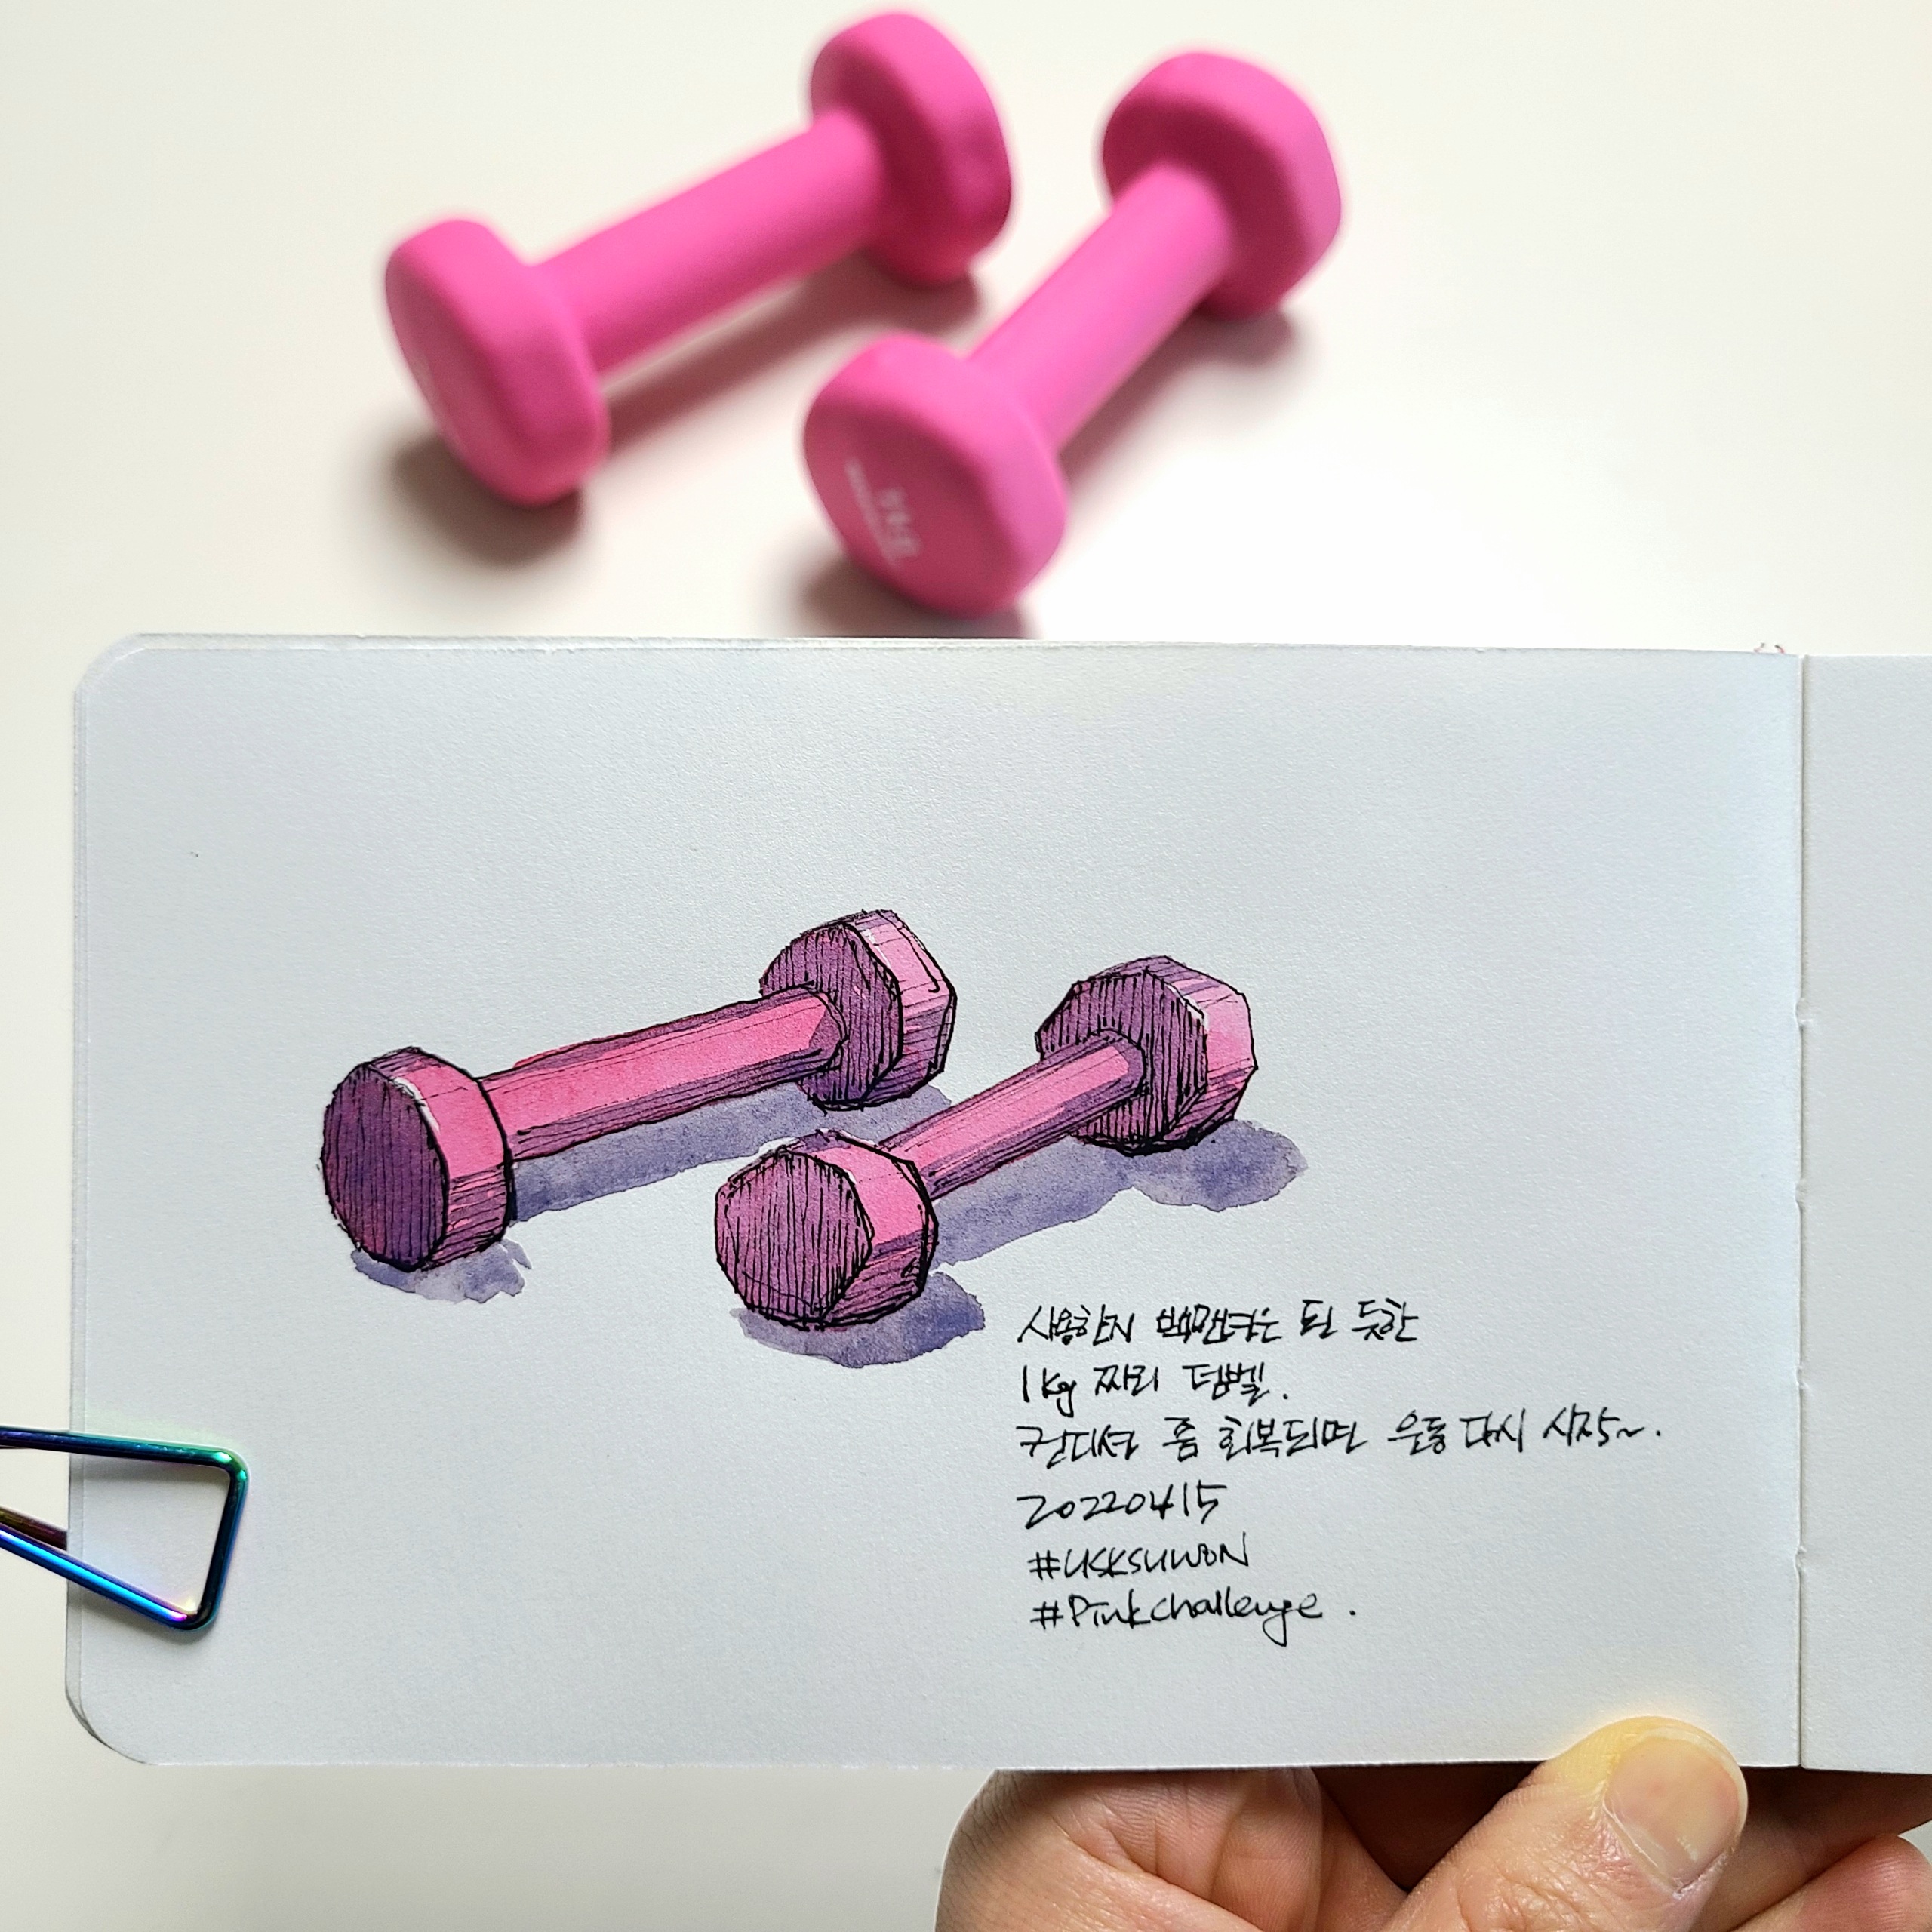 사용한지 백만년은 된 듯한
1kg 짜리 덤벨.
컨디션 좀 회복되면 운동 다시 시작~.
20220415
#USKSUWON
#Pinkchallenge.